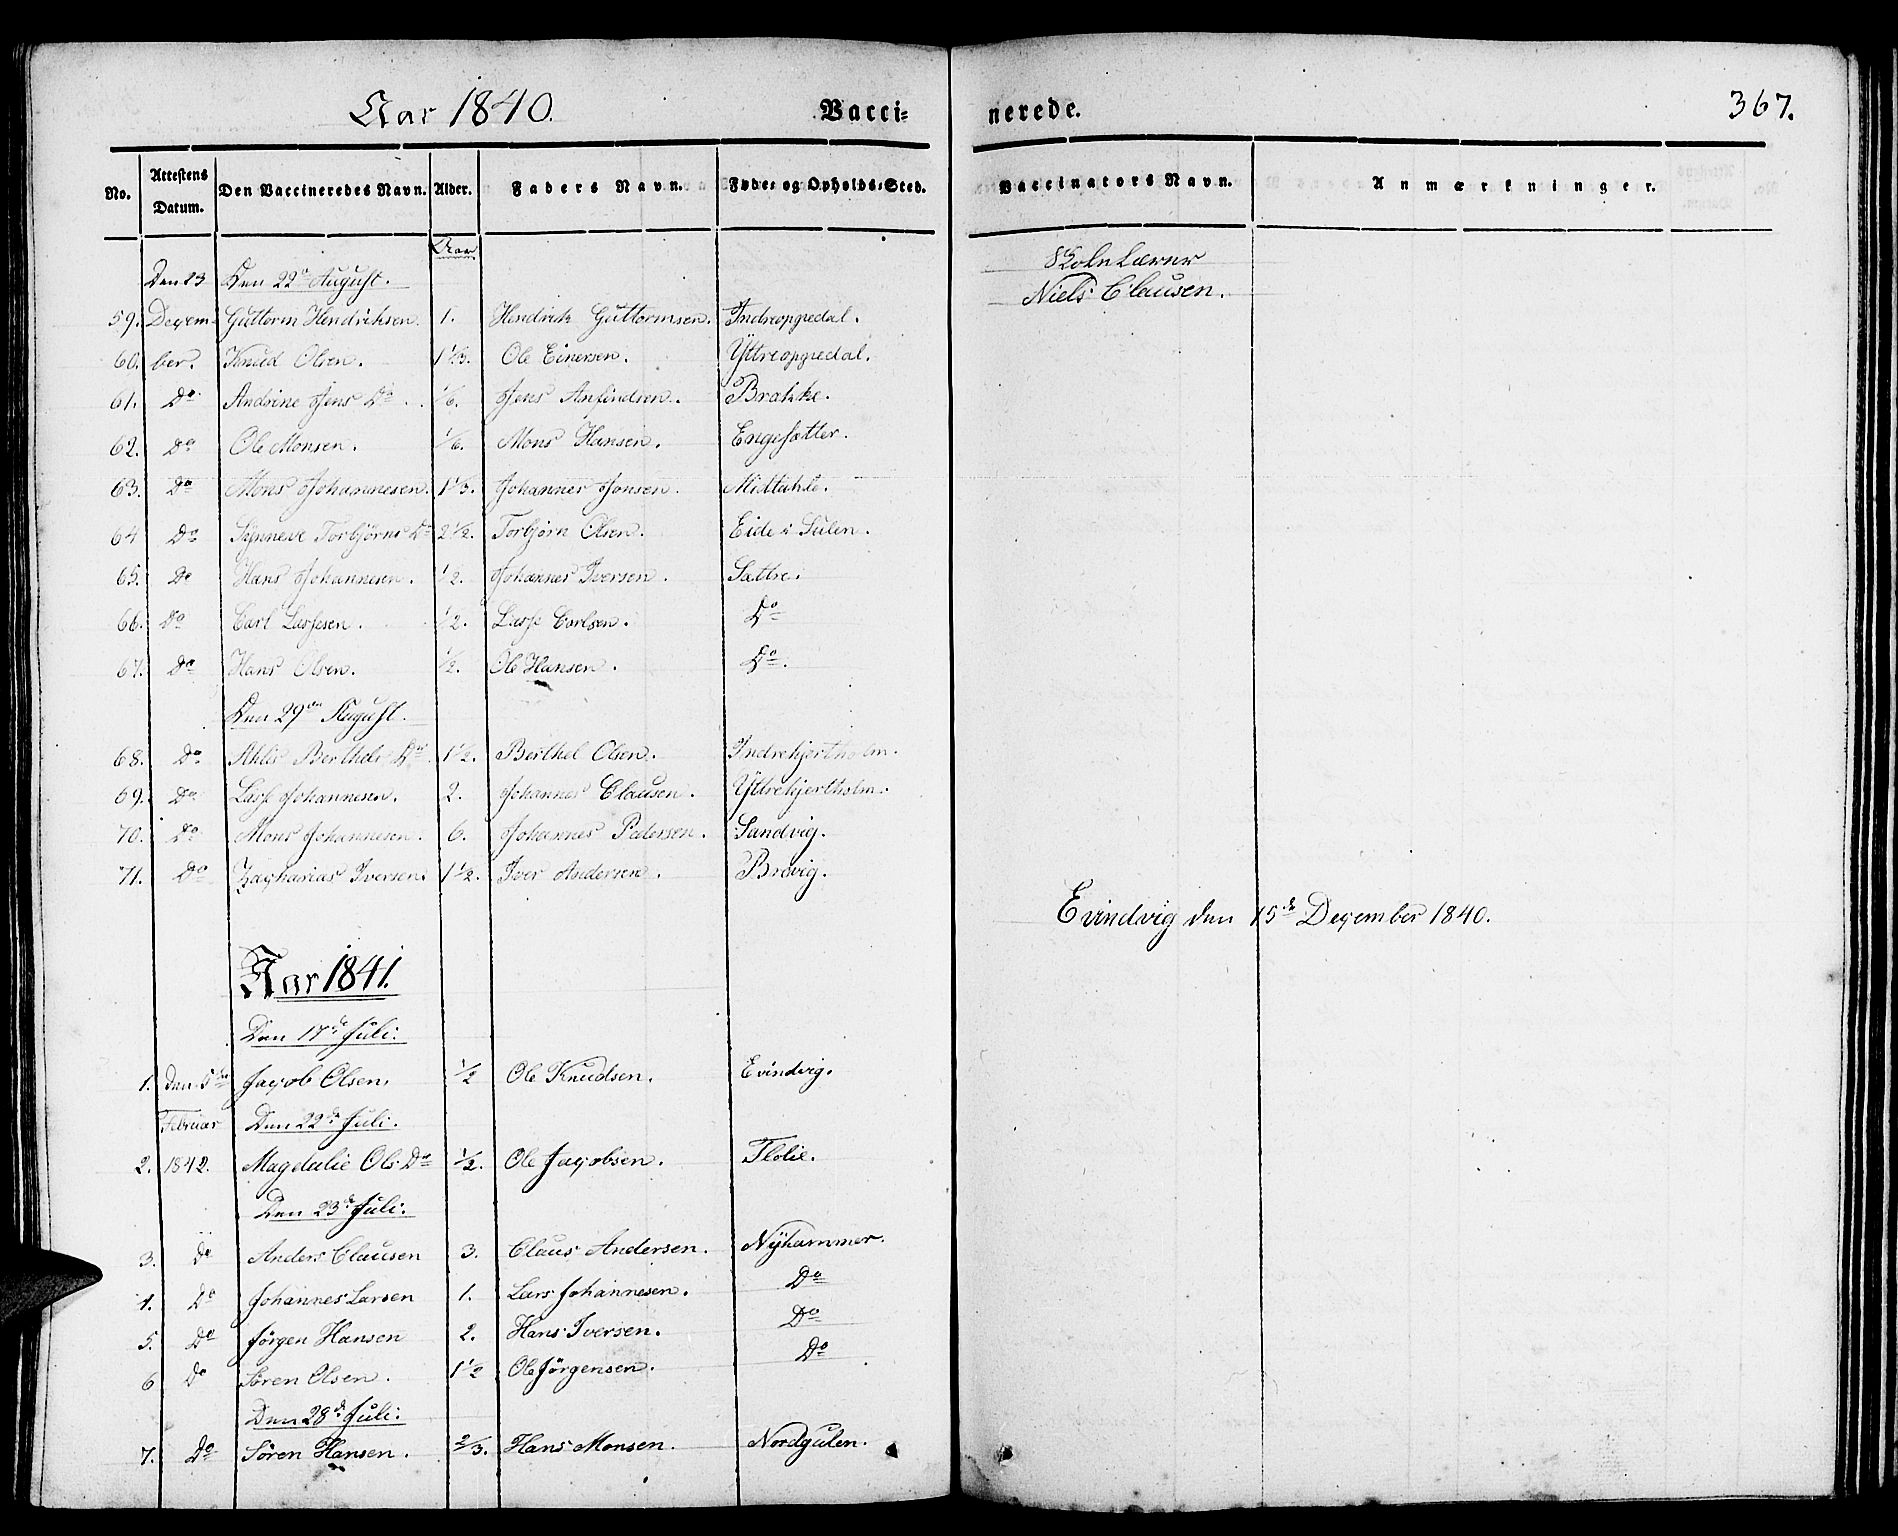 Aar 1840. Vacci= nerede. 367.
No. Attestens Datum. Den Vaccineredes Navn. Alder. Faders Navn. Føde= og Opholds=Sted. Vaccinators Navn. Anmærkninger.
Aar
Den 23 Den 22de August. Skole Lærer
Niels Clausen.
59. Decem- Guttorm Hendriksen. 1. Hendrik Guttormsen. Indreoppedal.
60. ber. Knud Olsen. 1 1/3. Ole Einersen. Yttreoppedal.
61. Do Andrine Jens Dr. 1/6. Jens Anfindsen. Brakke.
62. Do Ole Monsen. 1/6. Mons Hansen. Engesætter.
63. Do Mons Johannesen. 1 1/3. Johannes Jonsen. Midtuhle.
64 Do Synneve Torbjörns Dr 2 1/2. Torbjörn Olsen. Eide i Sulen.
65. Do Hans Johannesen. 1/2. Johannes Iversen. Sættre.
66. Do Carl Lassesen. 1/2. Lasse Carlsen. Do
67. Do Hans Olsen. 1/2. Ole Hansen. Do.
Den 29de August.
68. Do Ahlis Berthels Dr. 1 1/2. Berthel Olsen. Indrehjertholm.
69. Do Lasse Johannesen. 2. Johannes Clausen. Yttrehjertholm.
70. Do Mons Johannesen. 6. Johannes Pedersen. Sandvig.
71. Do Zacharias Iversen. 1 1/2. Iver Andersen. Brevig.
Evindvig den 15de December 1840.
Aar 1841.
Den 17de Juli.
1. Den 5te Jacob Olsen. 1/2 Ole Knudsen. Evindvig.
Februar Den 22de Juli.
2. 1842. Magdalie Ols Dr 1/2. Ole Jacobsen. Flolie.
Den 23de Juli.
3. Do Anders Clausen 3. Claus Andersen. Nyhammer.
4. Do Johannes Larsen 1. Lars Johannesen. Do
5. Do Jörgen Hansen 2. Hans Iversen. Do
6 Do Sören Olsen. 1 1/2 Ole Jörgensen. Do
Den 28de Juli.
7. Do Sören Hansen. 2/3. Hans Monsen. Nordgulen.